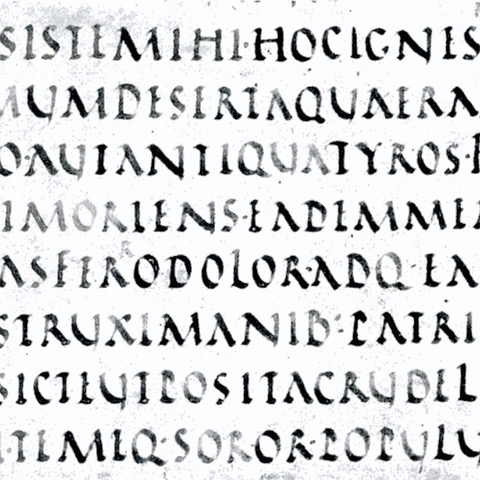 SISTEMIHI·HOCIGNES
MUMDESERTAQUAERA
OAUTANTIQUATYROS·F
IMORIENS·EADEMMEA
ASFERRODOLOR·ADQ·EA
STRUXIMANIB·PATRI
SICTEUTPOSITACRUDEL
·TEMEQ·SOROR·POPULU